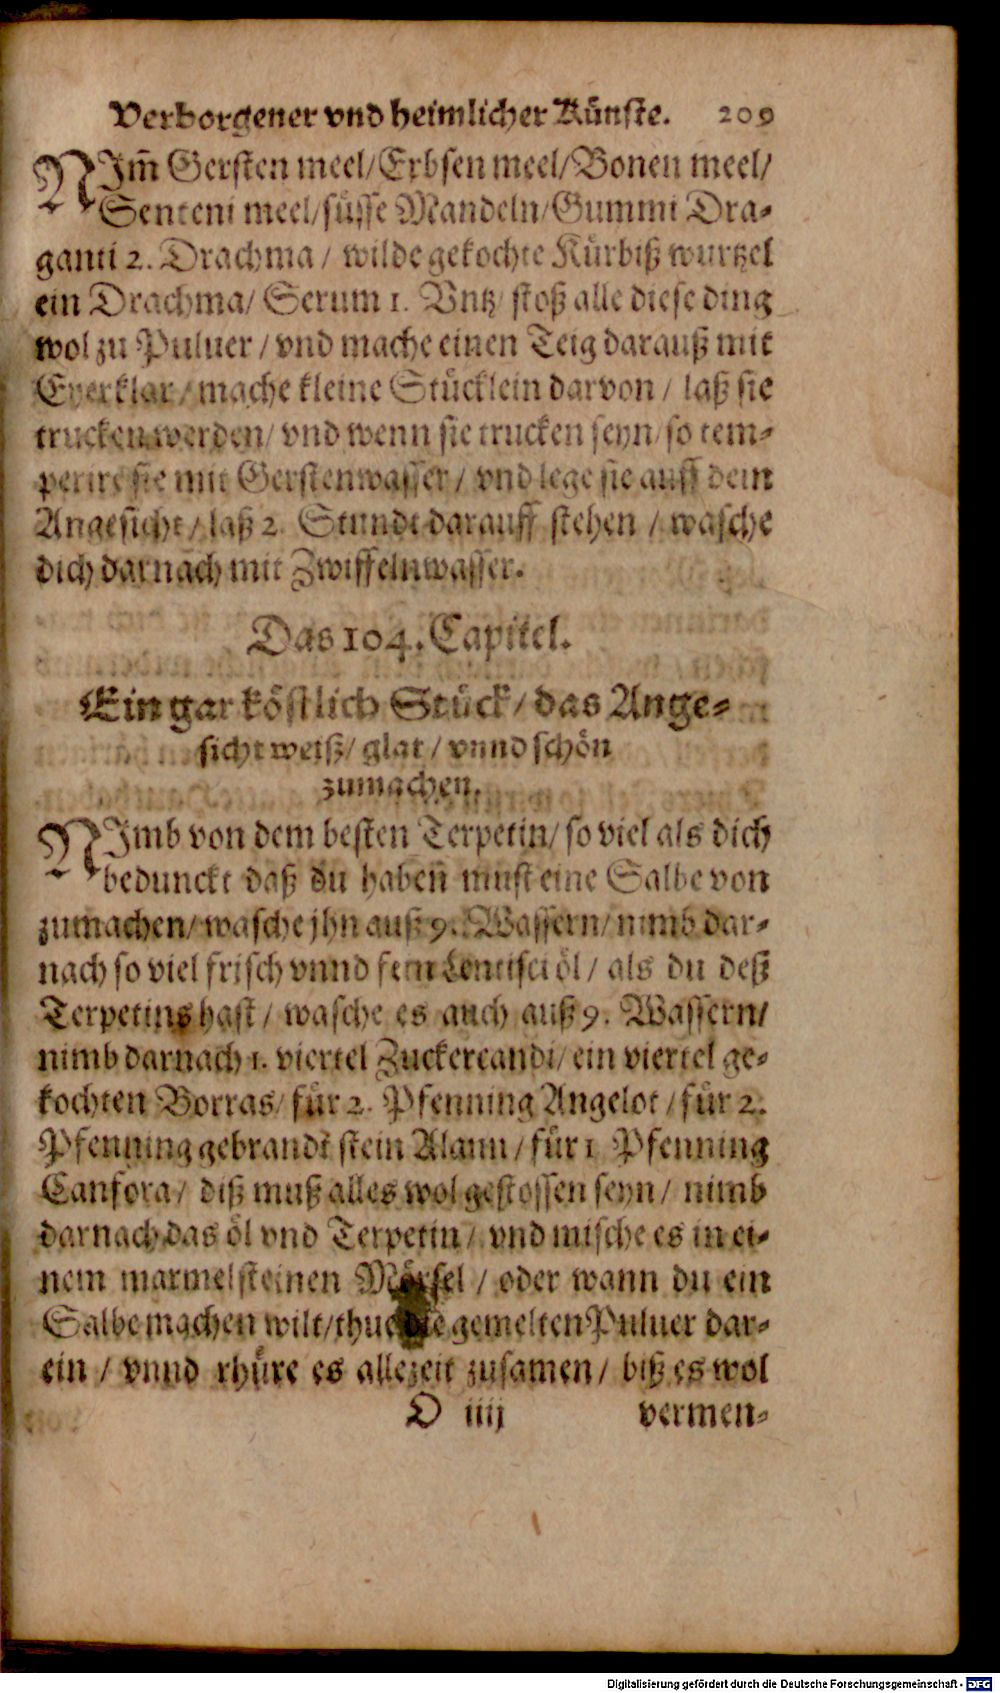 Verborgener vnd heimlicher Künste. 209
NIm̃ Gersten meel/Erbsen meel/Bonen meel/
Senteni meel/süsse Mandeln/Gummi Dra-
ganti 2. Drachma / wilde gekochte Kürbiß wurtzel
ein Drachma/ Serum 1. Vntz/ stoß alle diese ding
wol zu Puluer / vnd mache einen Teig darauß mit
Eyerklar / mache kleine Stücklein darvon / laß sie
trucken werden/ vnd wenn sie trucken seyn/ so tem-
perire sie mit Gerstenwasser / vnd lege sie auff dein
Angesicht / laß 2. Stundt darauff stehen / wasche
dich darnach mit Zwiffelnwasser.
Das 104. Capitel.
Ein gar köstlich Stück / das Ange-
sicht weiß/ glat / vnnd schön
zumachen.
NImb von dem besten Terpetin/ so viel als dich
bedunckt daß du haben must eine Salbe von
zumachen/ wasche jhn auß 9. Wassern/ nimb dar-
nach so viel frisch vnnd fein Lentisci öl / als du deß
Terpetins hast / wasche es auch auß 9. Wassern/
nimb darnach 1. viertel Zuckercandi/ ein viertel ge-
kochten Borras/ für 2. Pfenning Angelot / für 2.
Pfenning gebrandt stein Alaun / für 1 Pfenning
Canfora/ diß muß alles wol gestossen seyn/ nimb
darnach das öl vnd Terpetin / vnd mische es in ei-
nem marmelsteinen Mörsel / oder wann du ein
Salbe machen wilt/thue die gemelten Puluer dar-
ein / vnnd rhüre es allezeit zusamen / biß es wol
O iiij vermen-
Digitalisierung gefördert durch die Deutsche Forschungsgemeinschaft - DFG